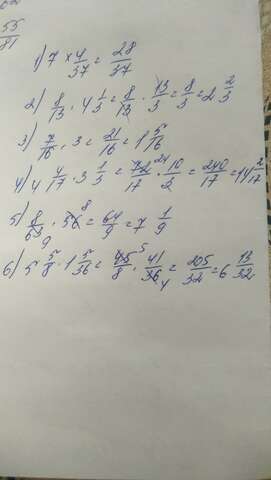 55
81
1) 7 × 4/37 = 28/37
2) 8/13 · 4 1/3 = 8/13 · 13/3 = 8/3 = 2 2/3
3) 7/16 · 3 = 21/16 = 1 5/16
4) 4 4/17 · 3 1/3 = 72 24/17 · 10/3 = 240/17 = 14 2/17
5) 8/63 9 · 56 8 = 64/9 = 7 1/9
6) 5 5/8 · 1 5/36 = 45 5/8 · 41/36 4 = 205/32 = 6 13/32